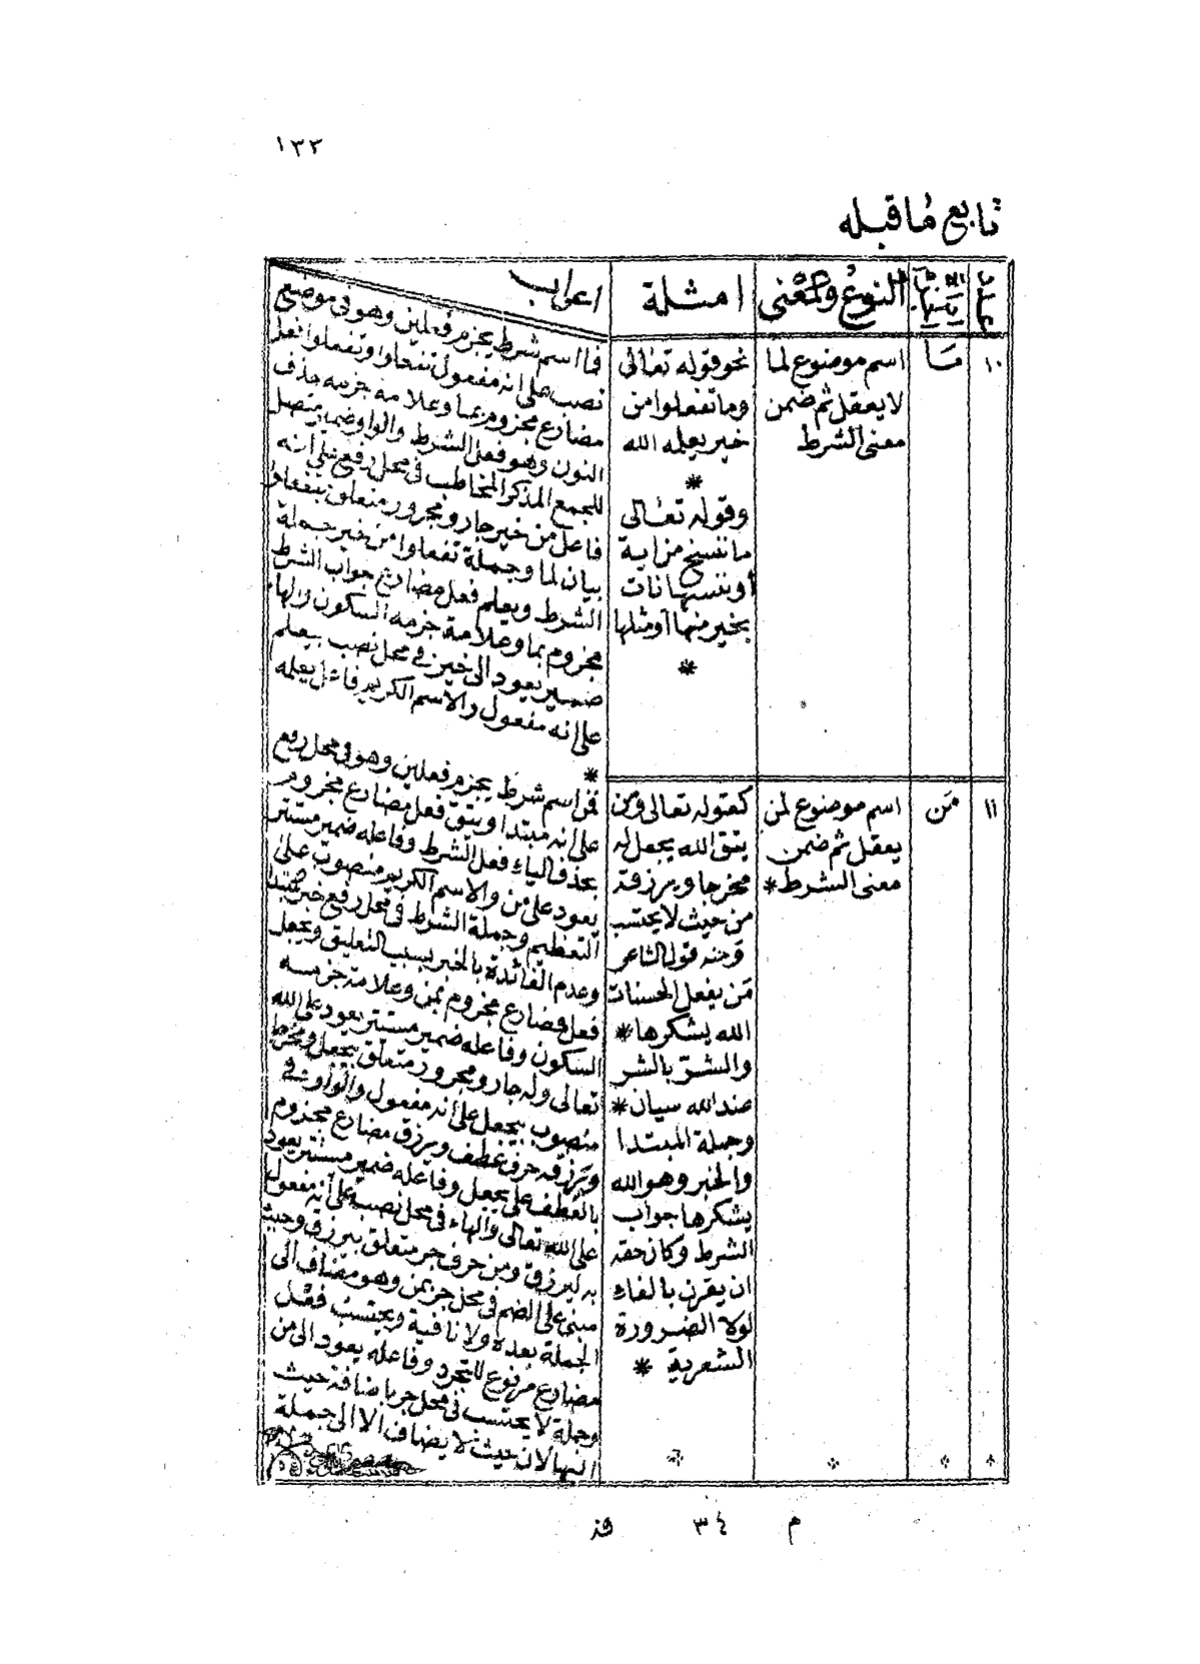 ١٣٣
تابع ما قبله
عدد
النوع والمعنى
امثلة
اعراب
١٠
ما
اسم موضوع لما
لا يعقل ثم ضمن
معنى الشرط
نحو قوله تعالى
وما تفعلوا من
خير يعلمه الله
*
وقوله تعالى
ما ننسخ من اية
أو ننسها نات
بخير منها أو مثلها
*
فما اسم شرط يجزم فعلين وهو فى موضع
نصب على انه مفعول تفعلوا وتفعلوا فعل
مضارع مجزوم بما وعلامة جزمه حذف
النون وهو فعل الشرط والواو ضمير متصل
للجمع المذكر المخاطب فى محل رفع على انه
فاعل من خير جار ومجرور متعلق بتفعلوا
بيان لما وجملة تفعلوا من خير جملة
الشرط ويعلم فعل مضارع جواب الشرط
مجزوم بما وعلامة جزمه السكون والهاء
ضمير يعود الى خير فى محل نصب بيعلم
على انه مفعول والاسم الكريم فاعل يعلمه
*
١١
مَن
اسم موضوع لمن
يعقل ثم ضمن
معنى الشرط *
كقوله تعالى ومن
يتق الله يجعل له
مخرجا ويرزقه
من حيث لا يحتسب
ومنه قول الشاعر
مَن يفعل الحسنات
الله يشكرها *
والشرّ بالشر
عند الله سيان *
وجملة المبتدا
والخبر وهو الله
يشكرها جواب
الشرط وكان حقه
ان يقرن بالفاء
لولا الضرورة
الشعرية *
فمن اسم شرط يجزم فعلين وهو فى محل رفع
على انه مبتدا ويتق فعل مضارع مجزوم
بحذف الياء فعل الشرط وفاعله ضمير مستتر
يعود على من والاسم الكريم منصوب على
التعظيم وجملة الشرط فى محل رفع خبر المبتدا
وعدم الفائدة بالخبر بسبب التعليق ويجعل
فعل مضارع مجزوم بمن وعلامة جزمه
السكون وفاعله ضمير مستتر يعود على الله
تعالى وله جار ومجرور متعلق بيجعل ومخرجا
منصوب بيجعل على انه مفعول والواو فى
ويرزقه حرف عطف ويرزق مضارع مجزوم
بالعطف على يجعل وفاعله ضمير مستتر يعود
على الله تعالى والهاء فى محل نصب على انه مفعول
به ليرزق ومن حرف جر متعلق بيرزق وحيث
مبنى على الضم فى محل جر بمن وهو مضاف الى
الجملة بعده ولا نافية ويحتسب فعل
مضارع مرفوع للتجرد وفاعله يعود الى من
وجملة لا يحتسب فى محل جر باضافة حيث
اليها لان حيث لا يضاف الا الى جملة
م ٣٤ قذ